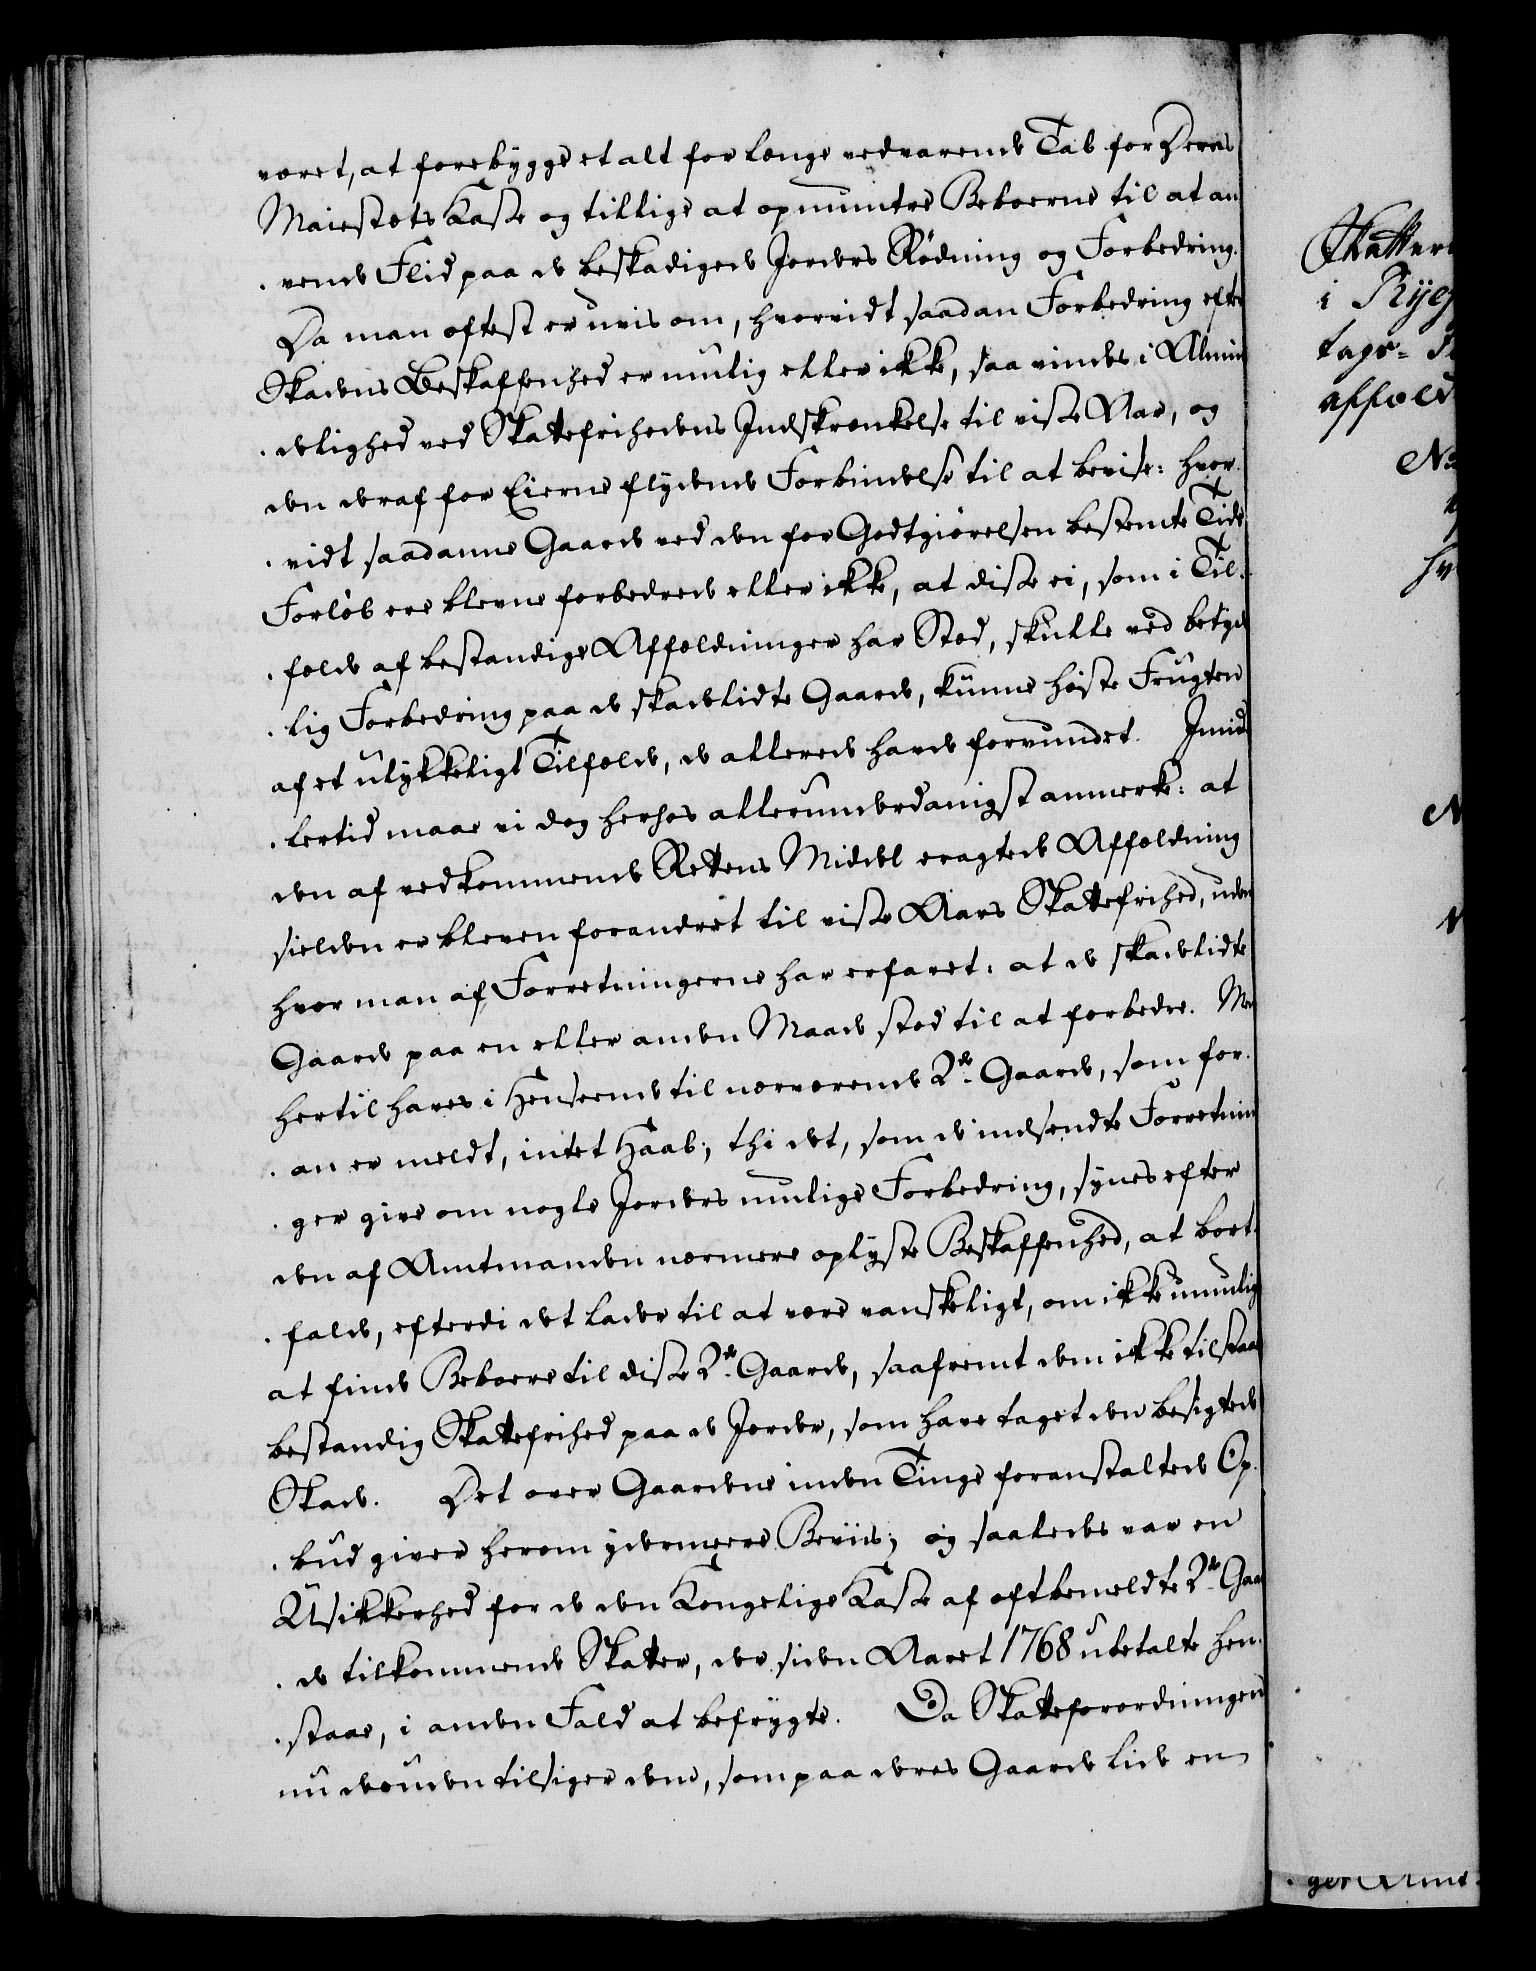 været, at forebygge et alt for længe vedvarende Tab for Deres
Maiestæts Kasse og tillige at opmuntre Beboerne til at an
vende Flid paa de beskadigede Jorders Rødning og Forbedring.
Da man oftest er uvis om, hvorvidt saadan Forbedring efter
Skadens Beskaffenhed er mulig eller ikke, saa vindes i Almin
delighed ved Skattefrihedens Indskrænkelse til visse Aar, og
den deraf for Eierne flydende Forbindelse til at bevise: hvor
vidt saadanne Gaarde ved den for Godtgiørelsen bestemte Tids
Forløb ere blevne forbedrede eller ikke, at disse ei, som i Til
fælde af bestandige Affældninger har Sted, skulle ved betyde
lig Forbedring paa de skadelidte Gaarde, kunne høste Frugten
af et ulykkeligt Tilfælde, de allerede havde forvundet. Imid
lertid maae vi dog herhos allerunderdanigst anmerke: at
den af vedkommende Rettens Middel eragtede Affældning
sielden er bleven forandret til visse Aars Skattefrihed, uden
hvor man af Forretningerne har erfaret: at de skadelidte
Gaarde paa en eller anden Maade stod til at forbedre. Men
hertil haves i Henseende til nærværende 2de Gaarde, som for
an er meldt, intet Haab; thi det, som de indsendte Forretnin
ger give om nogle Jorders mulige Forbedring, synes efter
den af Amtmanden nærmere oplyste Beskaffenhed, at bort
falde, efterdi det lader til at være vanskeligt, om ikke umuligt
at finde Beboere til disse 2de Gaarde, saafremt dem ikke tilstaaes
bestandig Skattefrihed paa de Jorder, som have taget den besigtede
Skade. Det over Gaardene inden Tinge foranstaltede Op
bud giver herom ydermeere Beviis; og saaledes var en
Usikkerhed for de den Kongelige Kasse af oftbemeldte 2de Gaar
de tilkommende Skatter, der siden Aaret 1768 ubetalte hen
staae, i anden Fald at befrygte. Da Skatteforordningen
nu desuden tilsiger dem, som paa deres Gaarde lide en
i Ryef
tags=
affæld